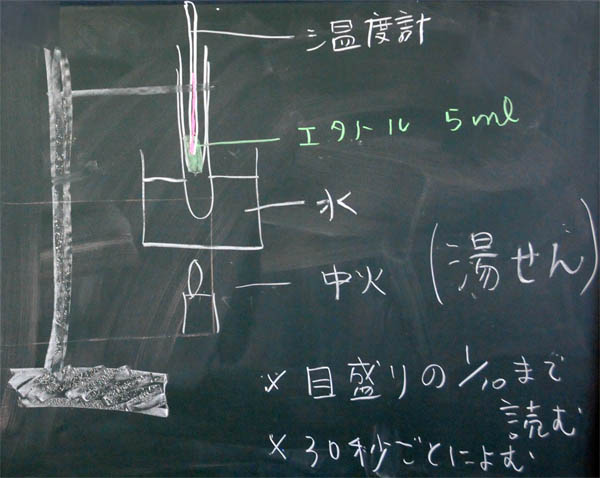 温度計
エタトル 5ml
水
中火
(湯せん)
× 目盛りの1/10まで
読む
× 30秒ごとによむ